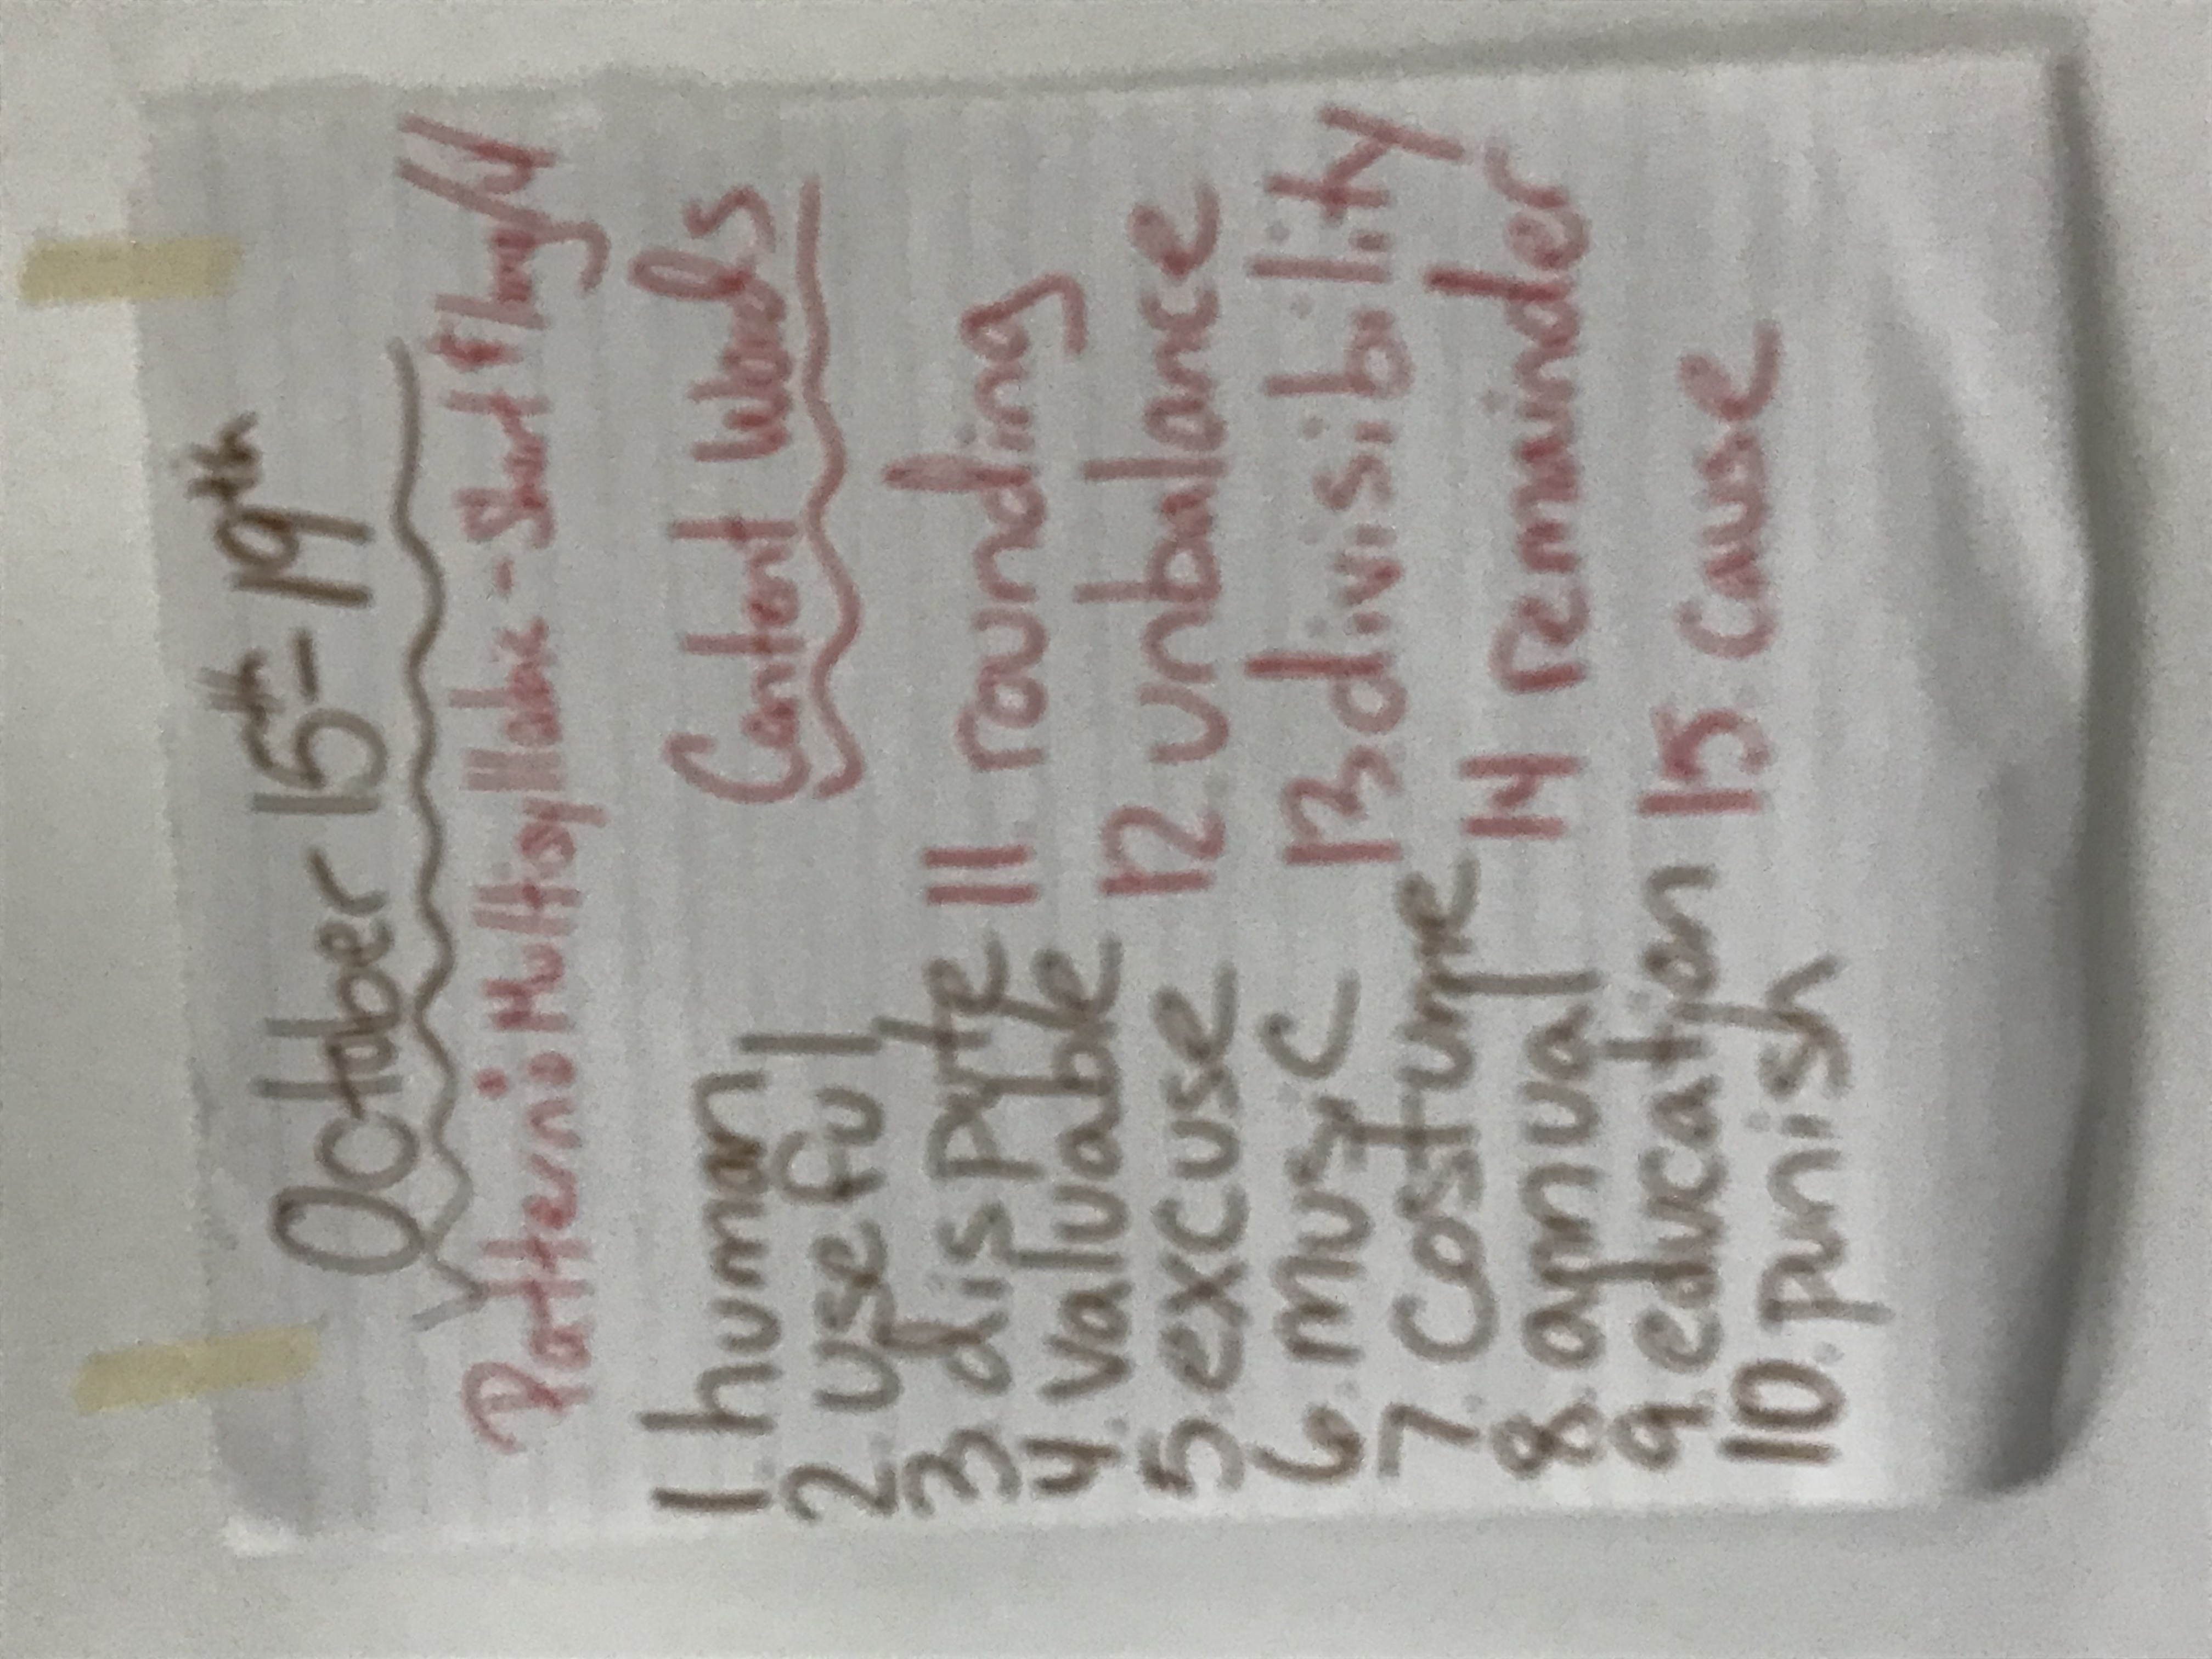 October 15th - 19th
Pattern: Multisyllabic - Short & long /u/
Content Words
1 human
2. useful
3. dispute
4. valuable
5. excuse
6. music
7. costume
8. annual
9. education
10. punish
11. rounding
12. unbalance
13. divisibility
14 remainder
15. cause